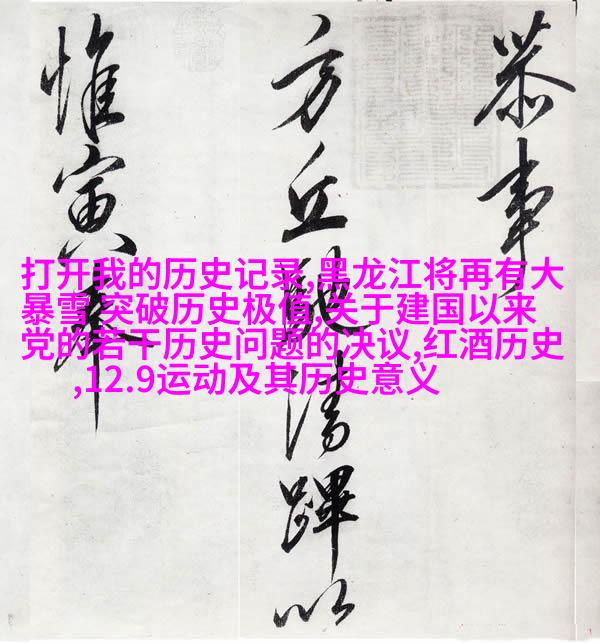 恭事
方丘馳清蹕以
惟寅
打开我的历史记录,黑龙江将再有大
暴雪 突破历史极值,关于建国以来
党的若干历史问题的决议,红酒历史
,12.9运动及其历史意义